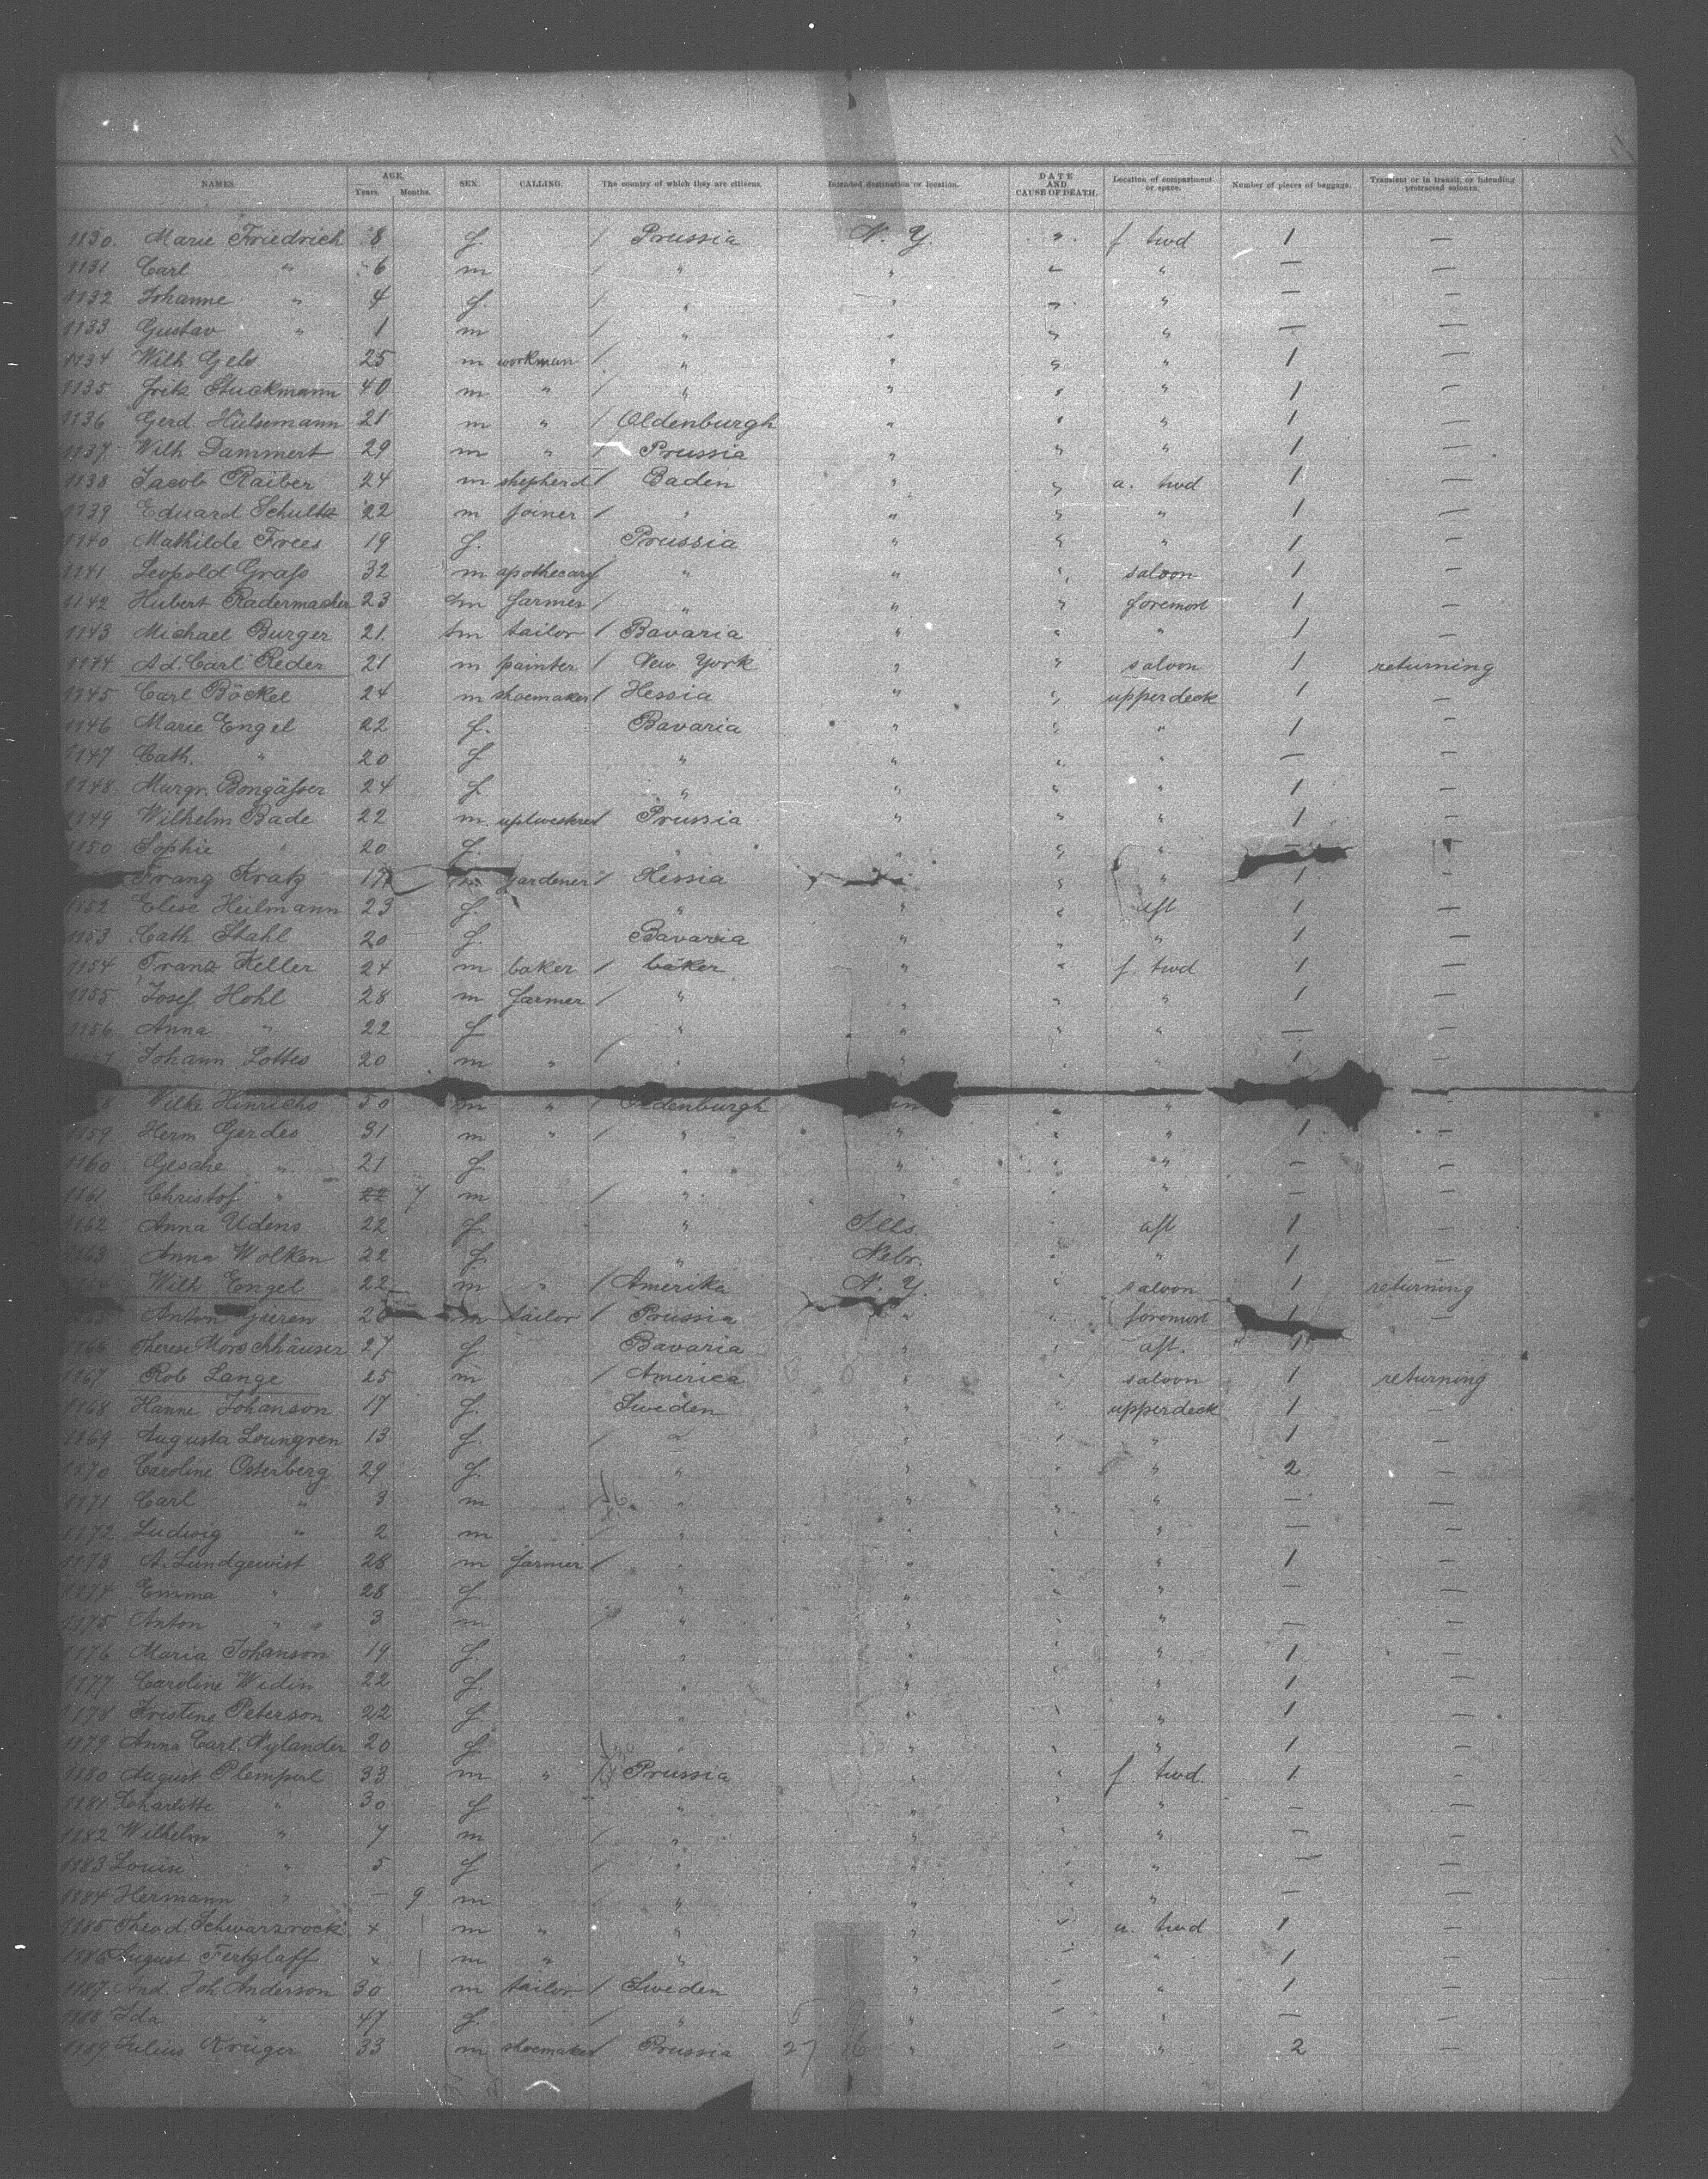 NAMES. AGE. Years. Months. SEX. CALLING. The country of which they are citizens. Intended destination or location. DATE AND CAUSE OF DEATH. Location of compartment or space. Number of pieces of baggage. Transient or in transit, or intending protracted sojourn.
1130. Marie Friedrich 8 f. / Prussia N. Y. " f twd 1 —
1131 Carl " 6 m / " " " " — —
1132 Johanne " 4 f. / " " " " — —
1133 Gustav " 1 m / " " " " — —
1134 Wilh Gels 25 m workman / " " " " 1 —
1135 Fritz Stuckmann 40 m " / " " " " 1 —
1136 Gerd. Hülsemann 21 m " / Oldenburgh " " " 1 —
1137 Wilh Dammert 29 m " / Prussia " " " 1 —
1138 Jacob Raiber 24 m shepherd / Baden " " a. twd 1 —
1139 Eduard Schultz 22 m joiner / " " " " 1 —
1140 Mathilde Frees 19 f. Prussia " " " 1 —
1141 Leopold Grafs 32 m apothecary " " " saloon 1 —
1142 Hubert Radermacher 23 m farmer / " " " foremost 1 —
1143 Michael Burger 21. m tailor / Bavaria " " " 1 —
1144 Ad. Carl Reder 21 m painter / New York " " saloon 1 returning
1145 Carl Böckel 24 m shoemaker / Hessia " " upperdeck 1 —
1146 Marie Engel 22 f. Bavaria " " " 1 —
1147 Cath. " 20 f " " " " — —
1148 Margr. Bongässer 24 f. " " " " 1 —
1149 Wilhelm Bade 22 m. Prussia " " " 1 —
1150 Sophie " 20 f. " " " " —
Franz Kratz 17 m gardener / Hessia " " " 1 —
1152 Elise Heilmann 23 f. " " " aft 1 —
1153 Cath Stahl 20 f. Bavaria " " " 1 —
1154 Franz Keller 24 m baker / baker " " f. twd 1 —
1155 Josef Hohl 28 m farmer / " " " " 1 —
1156 Anna " 22 f " " " " — —
Johann Lottes 20 m " / " " " " 1 —
8 Wilke Hinrichs 50 m " / Oldenburgh " " —
1159 Herm Gerdes 31 m " / " " " " 1 —
1160 Gesche " 21 f " " " " — —
1161 Christof " 22 7 m / " " " " — —
1162 Anna Udens 22 f. " Ills. " aft 1 —
1163 Anna Wolken 22 f. " Nebr. " " 1 —
Wilh Engel 22 m " / Amerika N. Y. " saloon 1 returning
Anton m tailor / Prussia " " foremost 1 —
1166 Therese Morschhäuser 27 f Bavaria " " aft. 1 —
1167 Rob Lange 25 m / America " " saloon 1 returning
1168 Hanne Johanson 17 f. Sweden " " upperdeck 1 —
1169 Augusta Loungren 13 f. / " " " " 1 —
1170 Caroline Osterberg 29 f. " " " " 2 —
1171 Carl " 3 m " " " " — —
1172 Ludwig " 2 m / " " " " — —
1173 A. Lundgewist 28 m farmer / " " " " 1 —
1174 Emma " 28 f. " " " " — —
1175 Anton " 3 m / " " " " — —
1176 Maria Johanson 19 f. " " " " 1 —
1177 Caroline Widin 22 f. " " " " 1 —
1178 Kristine Peterson 22 f. " " " " 1 —
1179 Anna Carl. Nylander 20 f " " " " 1 —
1180 August Plemperl 33 m " Prussia " " f. twd. 1 —
1181 Charlotte " 30 f " " " " — —
1182 Wilhelm " 7 m / " " " " — —
1183 Louise " 5 f / " " " " — —
1184 Hermann " — 9 m / " " " " — —
1185 Theod. Schwarzrock x m " " " " a. twd 1 —
1186 August Fertglaff x m " " " " " 1 —
1187. And. Joh Anderson 30 m tailor / Sweden " " " 1 —
1188 Ida " 47 f. / " " " " — —
1189 Julius Krüger 33 m shoemaker / Prussia 27 16 " " " 2 —